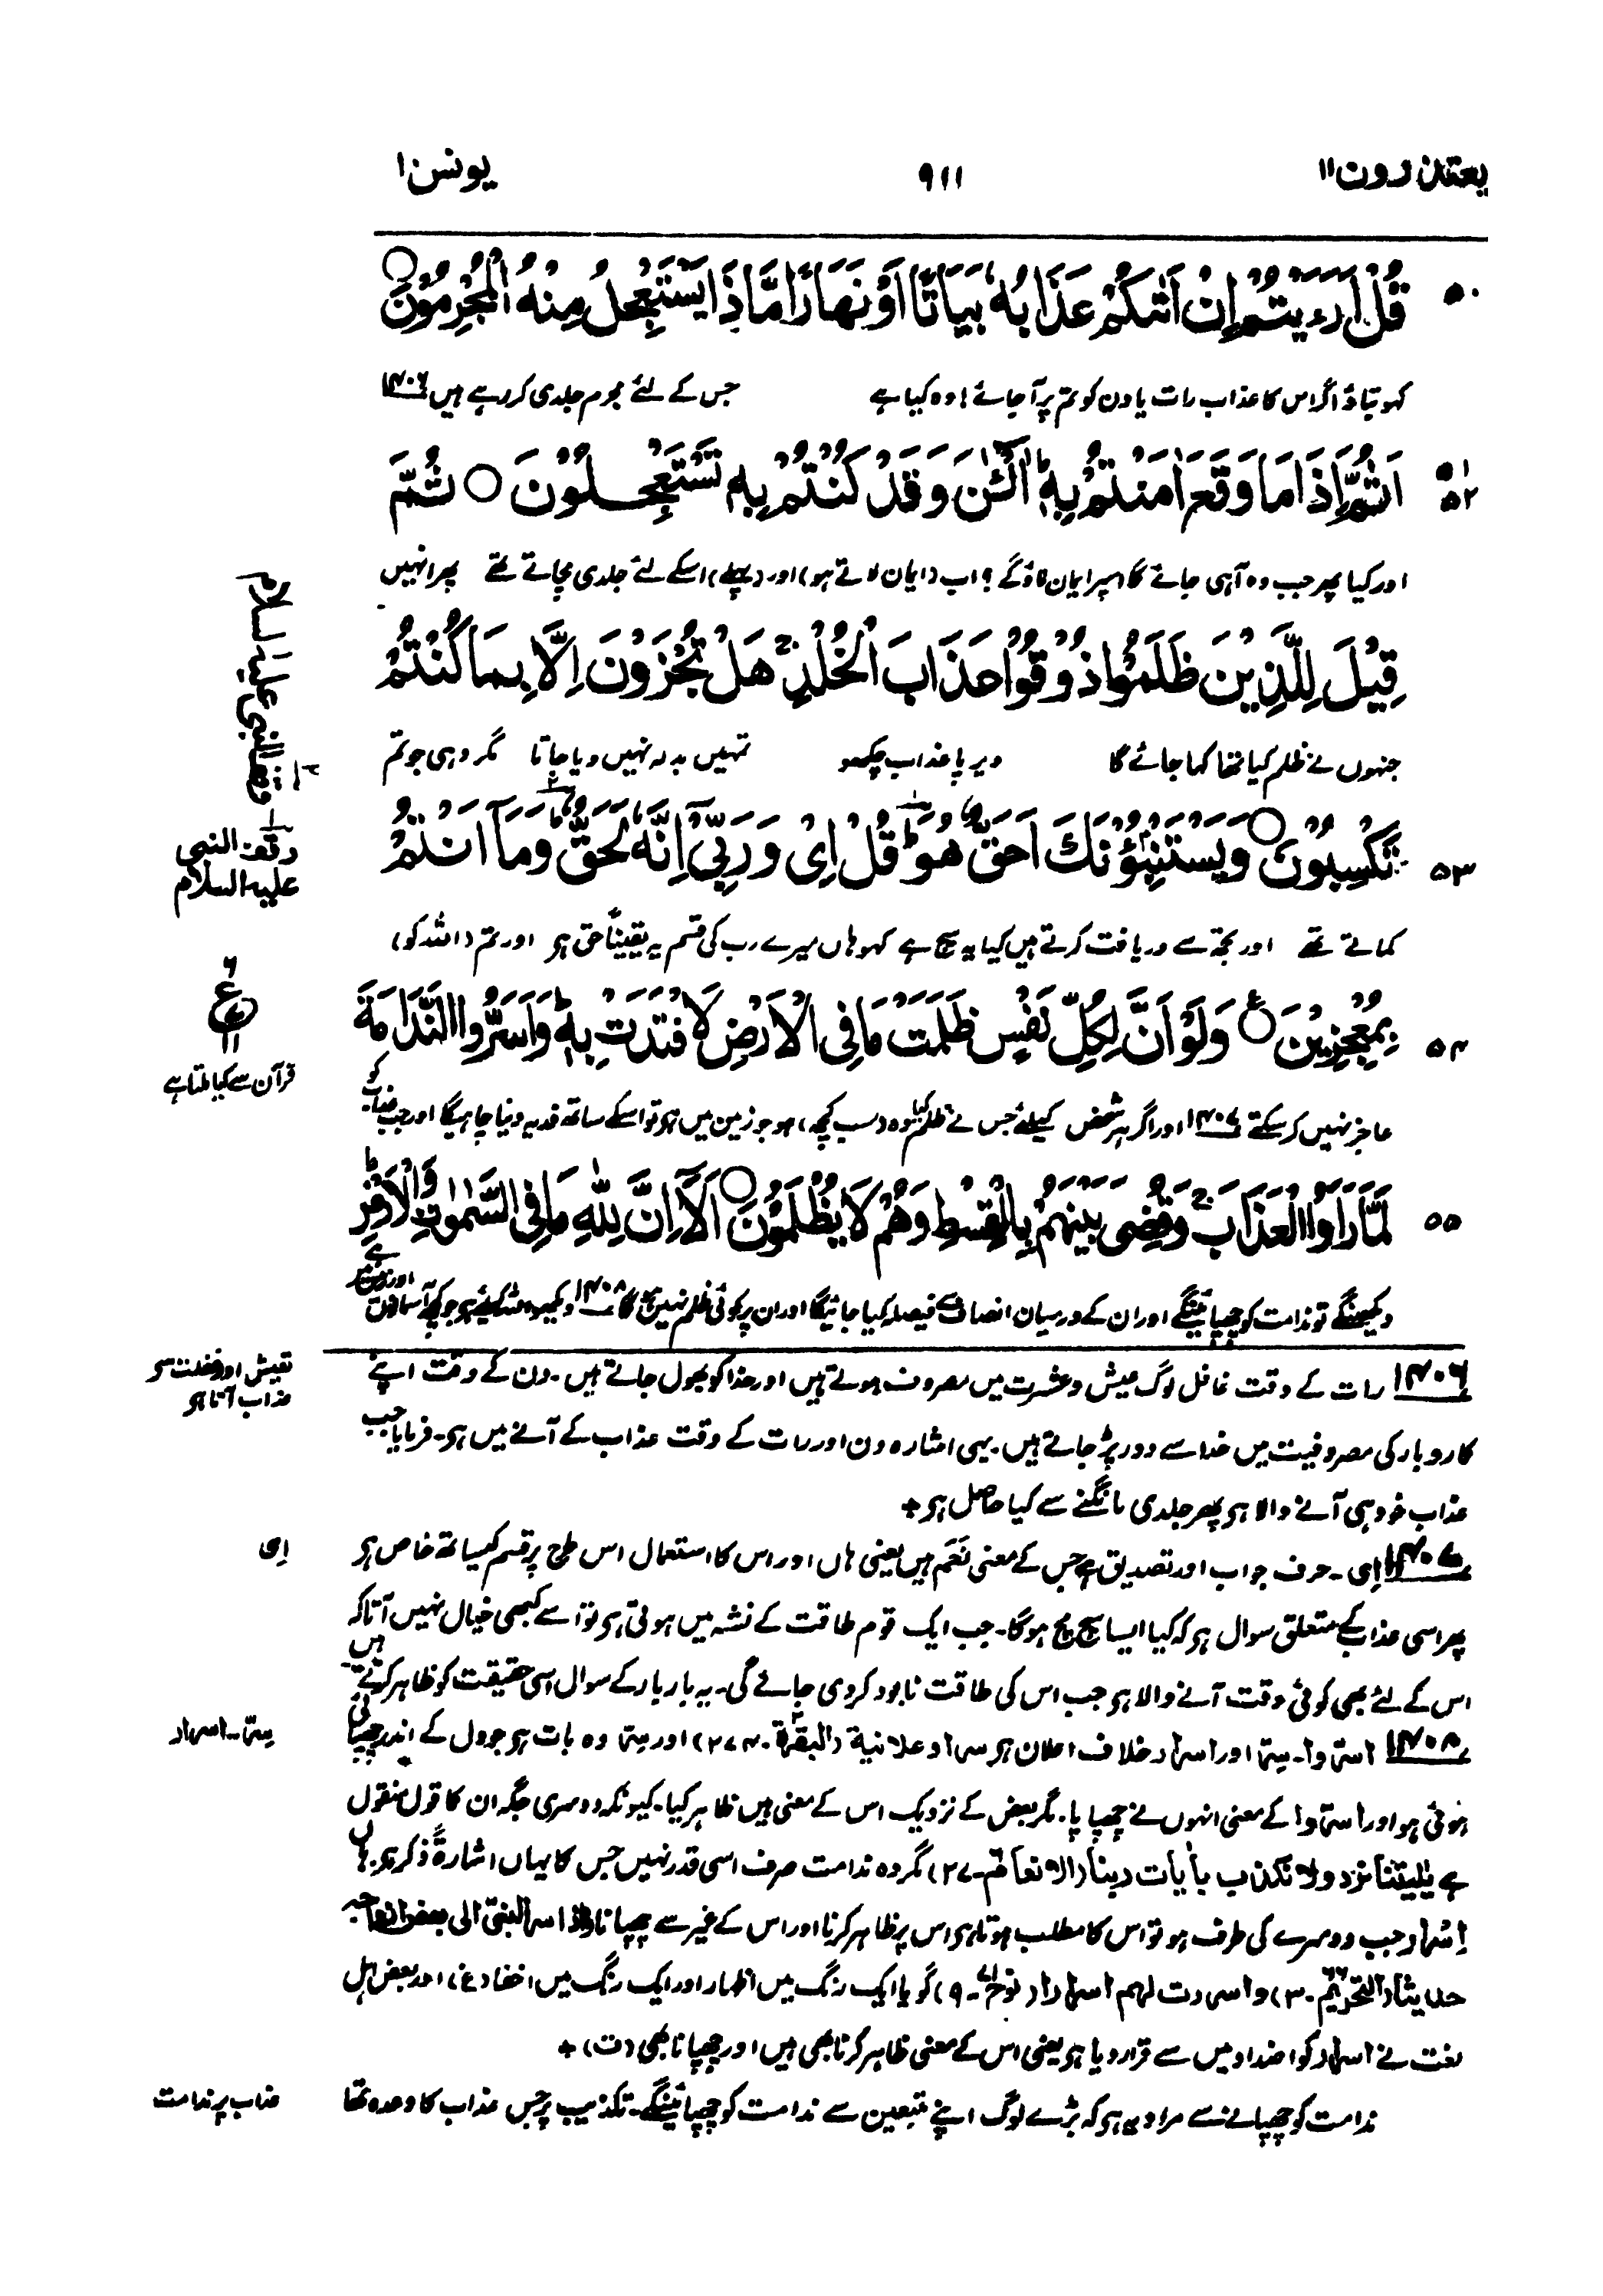 یعتذرون۱۱
۹۱۱
یونس۱۰
۵۰
قُلْ اَرَءَيْتُمْ اِنْ اَتٰىكُمْ عَذَابُهٗ بَيَاتًا اَوْ نَهَارًا مَّا ذَا يَسْتَعْجِلُ مِنْهُ الْمُجْرِمُوْنَ ○
کہو بتاؤ اگر اس کا عذاب رات یا دن کو تم پر آجائے! وہ کیا ہے جس کے لئے مجرم جلدی کر رہے ہیں ۱۴۰۶
۵۱
۵۲
اَثُمَّ اِذَا مَا وَقَعَ اٰمَنْتُمْ بِهٖ ؕ آٰلْـٰٔنَ وَقَدْ كُنْتُمْ بِهٖ تَسْتَعْجِلُوْنَ ○ ثُمَّ
اور کیا پھر جب وہ آہی جائے گا اسپر ایمان لاؤگے ؟ اب (ایمان لاتے ہو) اور (پہلے) اسکے لئے جلدی مچاتے تھے پھر انہیں
قِيْلَ لِلَّذِيْنَ ظَلَمُوْا ذُوْقُوْا عَذَابَ الْخُلْدِ ۚ هَلْ تُجْزَوْنَ اِلَّا بِمَا كُنْتُمْ
جنہوں نے ظلم کیا تھا کہا جائے گا دیرپا عذاب چکھو تمہیں بدلہ نہیں دیا جاتا مگر وہی جو تم
وقف النبی علیہ السلام
۵۳
تَكْسِبُوْنَ ○ وَيَسْتَنْۢبِـُٔوْنَكَ اَحَقٌّ هُوَ ؕ قُلْ اِيْ وَرَبِّيْٓ اِنَّهٗ لَحَقٌّ ؕ وَمَآ اَنْتُمْ
وقف النبی
علیہ السلام
کماتے تھے اور تجھ سے دریافت کرتے ہیں کیا یہ سچ ہے کہو ہاں میرے رب کی قسم یہ یقیناً حق ہو اور تم (اللہ کو)
۵۴
بِمُعْجِزِيْنَ ○ وَلَوْ اَنَّ لِكُلِّ نَفْسٍ ظَلَمَتْ مَا فِي الْاَرْضِ لَافْتَدَتْ بِهٖ ؕ وَاَسَرُّوا النَّدَامَةَ
۶
ع
۱۱
قرآن سے کیا ملتا ہے
عاجز نہیں کر سکتے ۱۴۰۷ اور اگر ہر شخص کیلئے جس نے ظلم کیا وہ (سب کچھ) ہو جو زمین میں ہو تو اسکے ساتھ فدیہ دینا چاہیگا اور جب عذاب کو
۵۵
لَمَّا رَاَوُا الْعَذَابَ ۚ وَقُضِيَ بَيْنَهُمْ بِالْقِسْطِ وَهُمْ لَا يُظْلَمُوْنَ ○ اَلَآ اِنَّ لِلّٰهِ مَا فِي السَّمٰوٰتِ وَالْاَرْضِ ؕ
دیکھینگے تو ندامت کو چھپائینگے اور ان کے درمیان انصاف سے فیصلہ کیا جائیگا اور ان پر کوئی ظلم نہیں ہوگا ۱۴۰۸ دیکھو اللہ کیلئے ہو جو کچھ آسمانوں اور زمین میں ہے
تعیش اور غفلت سو
عذاب آتا ہو
۱۴۰۶ رات کے وقت غافل لوگ عیش و عشرت میں مصروف ہوتے ہیں اور خدا کو بھول جاتے ہیں۔ دن کے وقت اپنے
کاروبار کی مصروفیت میں خدا سے دور پڑ جاتے ہیں۔ یہی اشارہ دن اور رات کے وقت عذاب کے آنے میں ہو۔ فرمایا جب
عذاب خود ہی آنے والا ہو پھر جلدی مانگنے سے کیا حاصل ہو +
اِی
۱۴۰۷ اِی۔ حرف جواب اور تصدیق ہے جس کے معنی نَعَم ہیں یعنی ہاں اور اس کا استعمال اس طرح پر قسم کیساتھ خاص ہو
پھر اسی عذاب کے متعلق سوال ہو کہ کیا ایسا سچ مچ ہوگا۔ جب ایک قوم طاقت کے نشہ میں ہوتی ہو تو اسے کبھی خیال نہیں آتا کہ
اس کے لئے بھی کوئی وقت آنے والا ہو جب اس کی طاقت نابود کردی جائے گی۔ یہ بار بار کے سوال اسی حقیقت کو ظاہر کرتے ہیں
سِرّ۔ اسرار
۱۴۰۸ اسرّوا۔ سِرّ اور اسرار خلاف اعلان ہو سرا وعلانیة (البقرۃ۔ ۲۷۴) اور سِرّ وہ بات ہو جو دل کے اندر چھپائی
ہوئی ہو اور اسرّوا کے معنی انہوں نے چھپایا۔ مگر بعض کے نزدیک اس کے معنی ہیں ظاہر کیا۔ کیونکہ دوسری جگہ ان کا قول منقول
ہے یٰلیتنا نرد ولا نکذب بأیات ربنا (الانعام۔ ۲۷) مگر وہ ندامت صرف اسی قدر نہیں جس کا یہاں اشارۃً ذکر ہو۔ ہاں
اِسْرار جب دوسرے کی طرف ہو تو اس کا مطلب ہوتا ہو اس پر ظاہر کرنا اور اس کے غیر سے چھپانا واذ اسر النبی الی بعض ازواجہ
حدیثا (التحریم۔ ۳) واسررت لہم اسرارا (نوح۔ ۹) گویا ایک رنگ میں اظہار اور ایک رنگ میں اخفا (غ) اور بعض اہل
لغت نے اسرار کو اضداد میں سے قرار دیا ہو یعنی اس کے معنی ظاہر کرنا بھی ہیں اور چھپانا بھی (ت) +
عذاب پر ندامت
ندامت کو چھپانے سے مراد یہ ہو کہ بڑے لوگ اپنے متبعین سے ندامت کو چھپائینگے۔ تکذیب پر جس عذاب کا وعدہ تھا